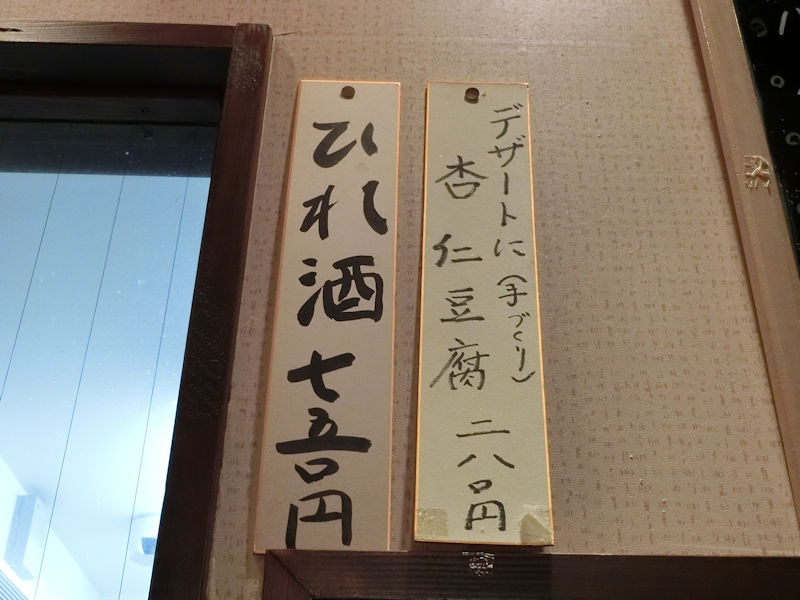 デザートに（手づくり）
杏仁豆腐 二八〇円
ひれ酒 七五〇円